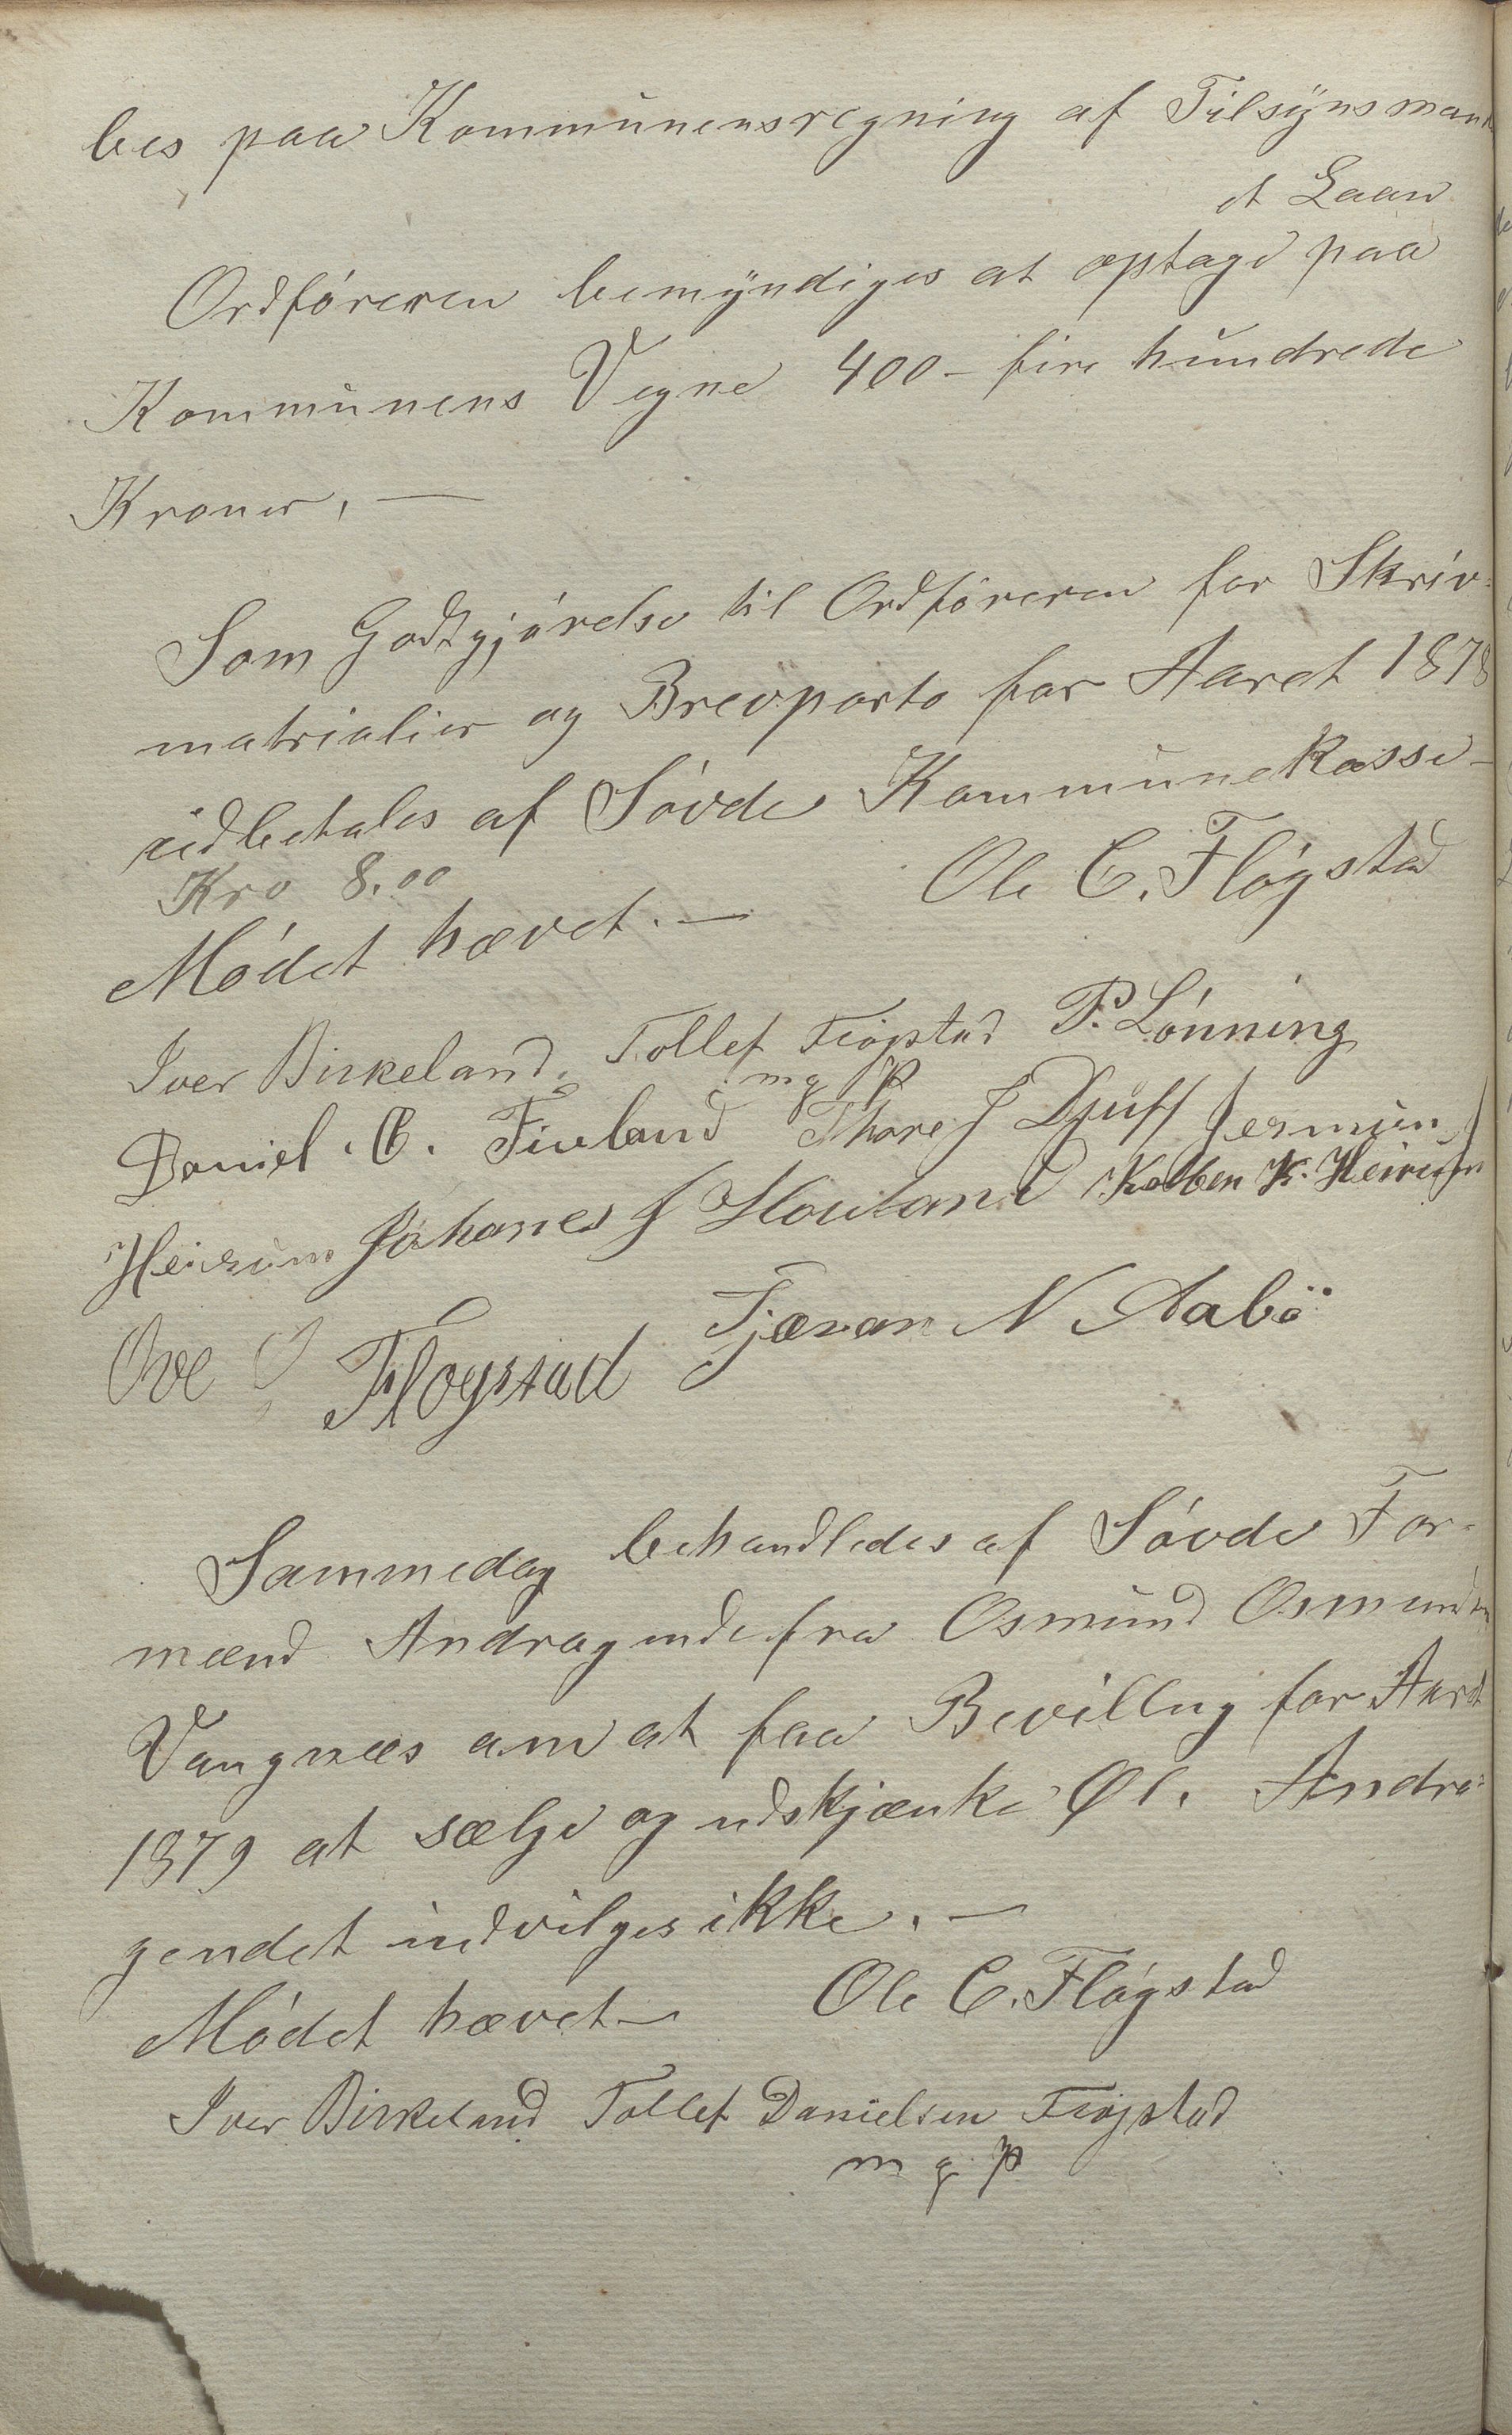 les paa Kommunensregning af Tilsynsmand
et Laan
Ordføreren bemyndiges at optage paa
Kommunens Vegne 400 - fire hundrede
Kroner. —
Som Godtgjørelse til Ordføreren for Skriv-
matrialier og Brevporto for Aaret 1878
udbetales af Søvde Kommunekasse -
Kro 8.00
Mødet hævet. — Ole C. Fløgstad
Iver Birkeland. Tollef Fiogstad P. Lønning
m g P
Daniel. C. Fivland Thore J Djuff Jermun
Heirum Johanes J Hovland Kolben K. Heirum
Ove Fløgstad Tjæran N Aabø
Sammedag behandledes af Søvde For-
mænd Andragende fra Osmund Osmunds
Vangnæs om at faa Bevillng for Aaret
1879 at sælge og udskjænke Øl. Andra-
gendet indvilges ikke. —
Mødet hævet — Ole C. Fløgstad
Iver Birkeland Tollef Danielsen Fiogstad
m g P